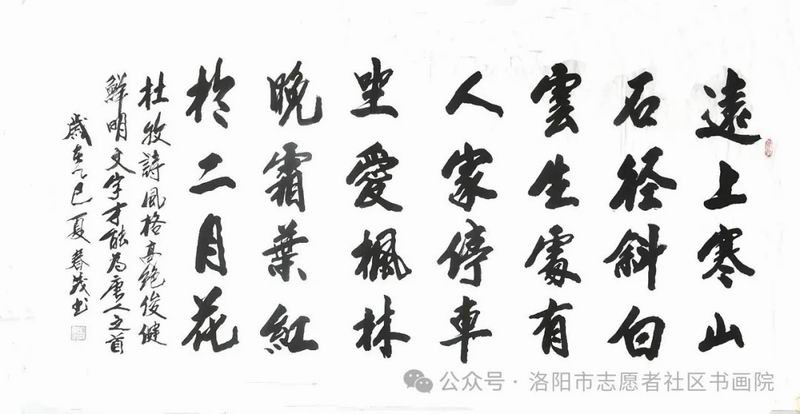 遠上寒山
石径斜白
雲生處有
人家停車
坐愛楓林
晚霜葉紅
於二月花
杜牧詩風格高絶俊健
鮮明文字才能為唐人之首
歲在乙巳夏春茂书
公众号·洛阳市志愿者社区书画院